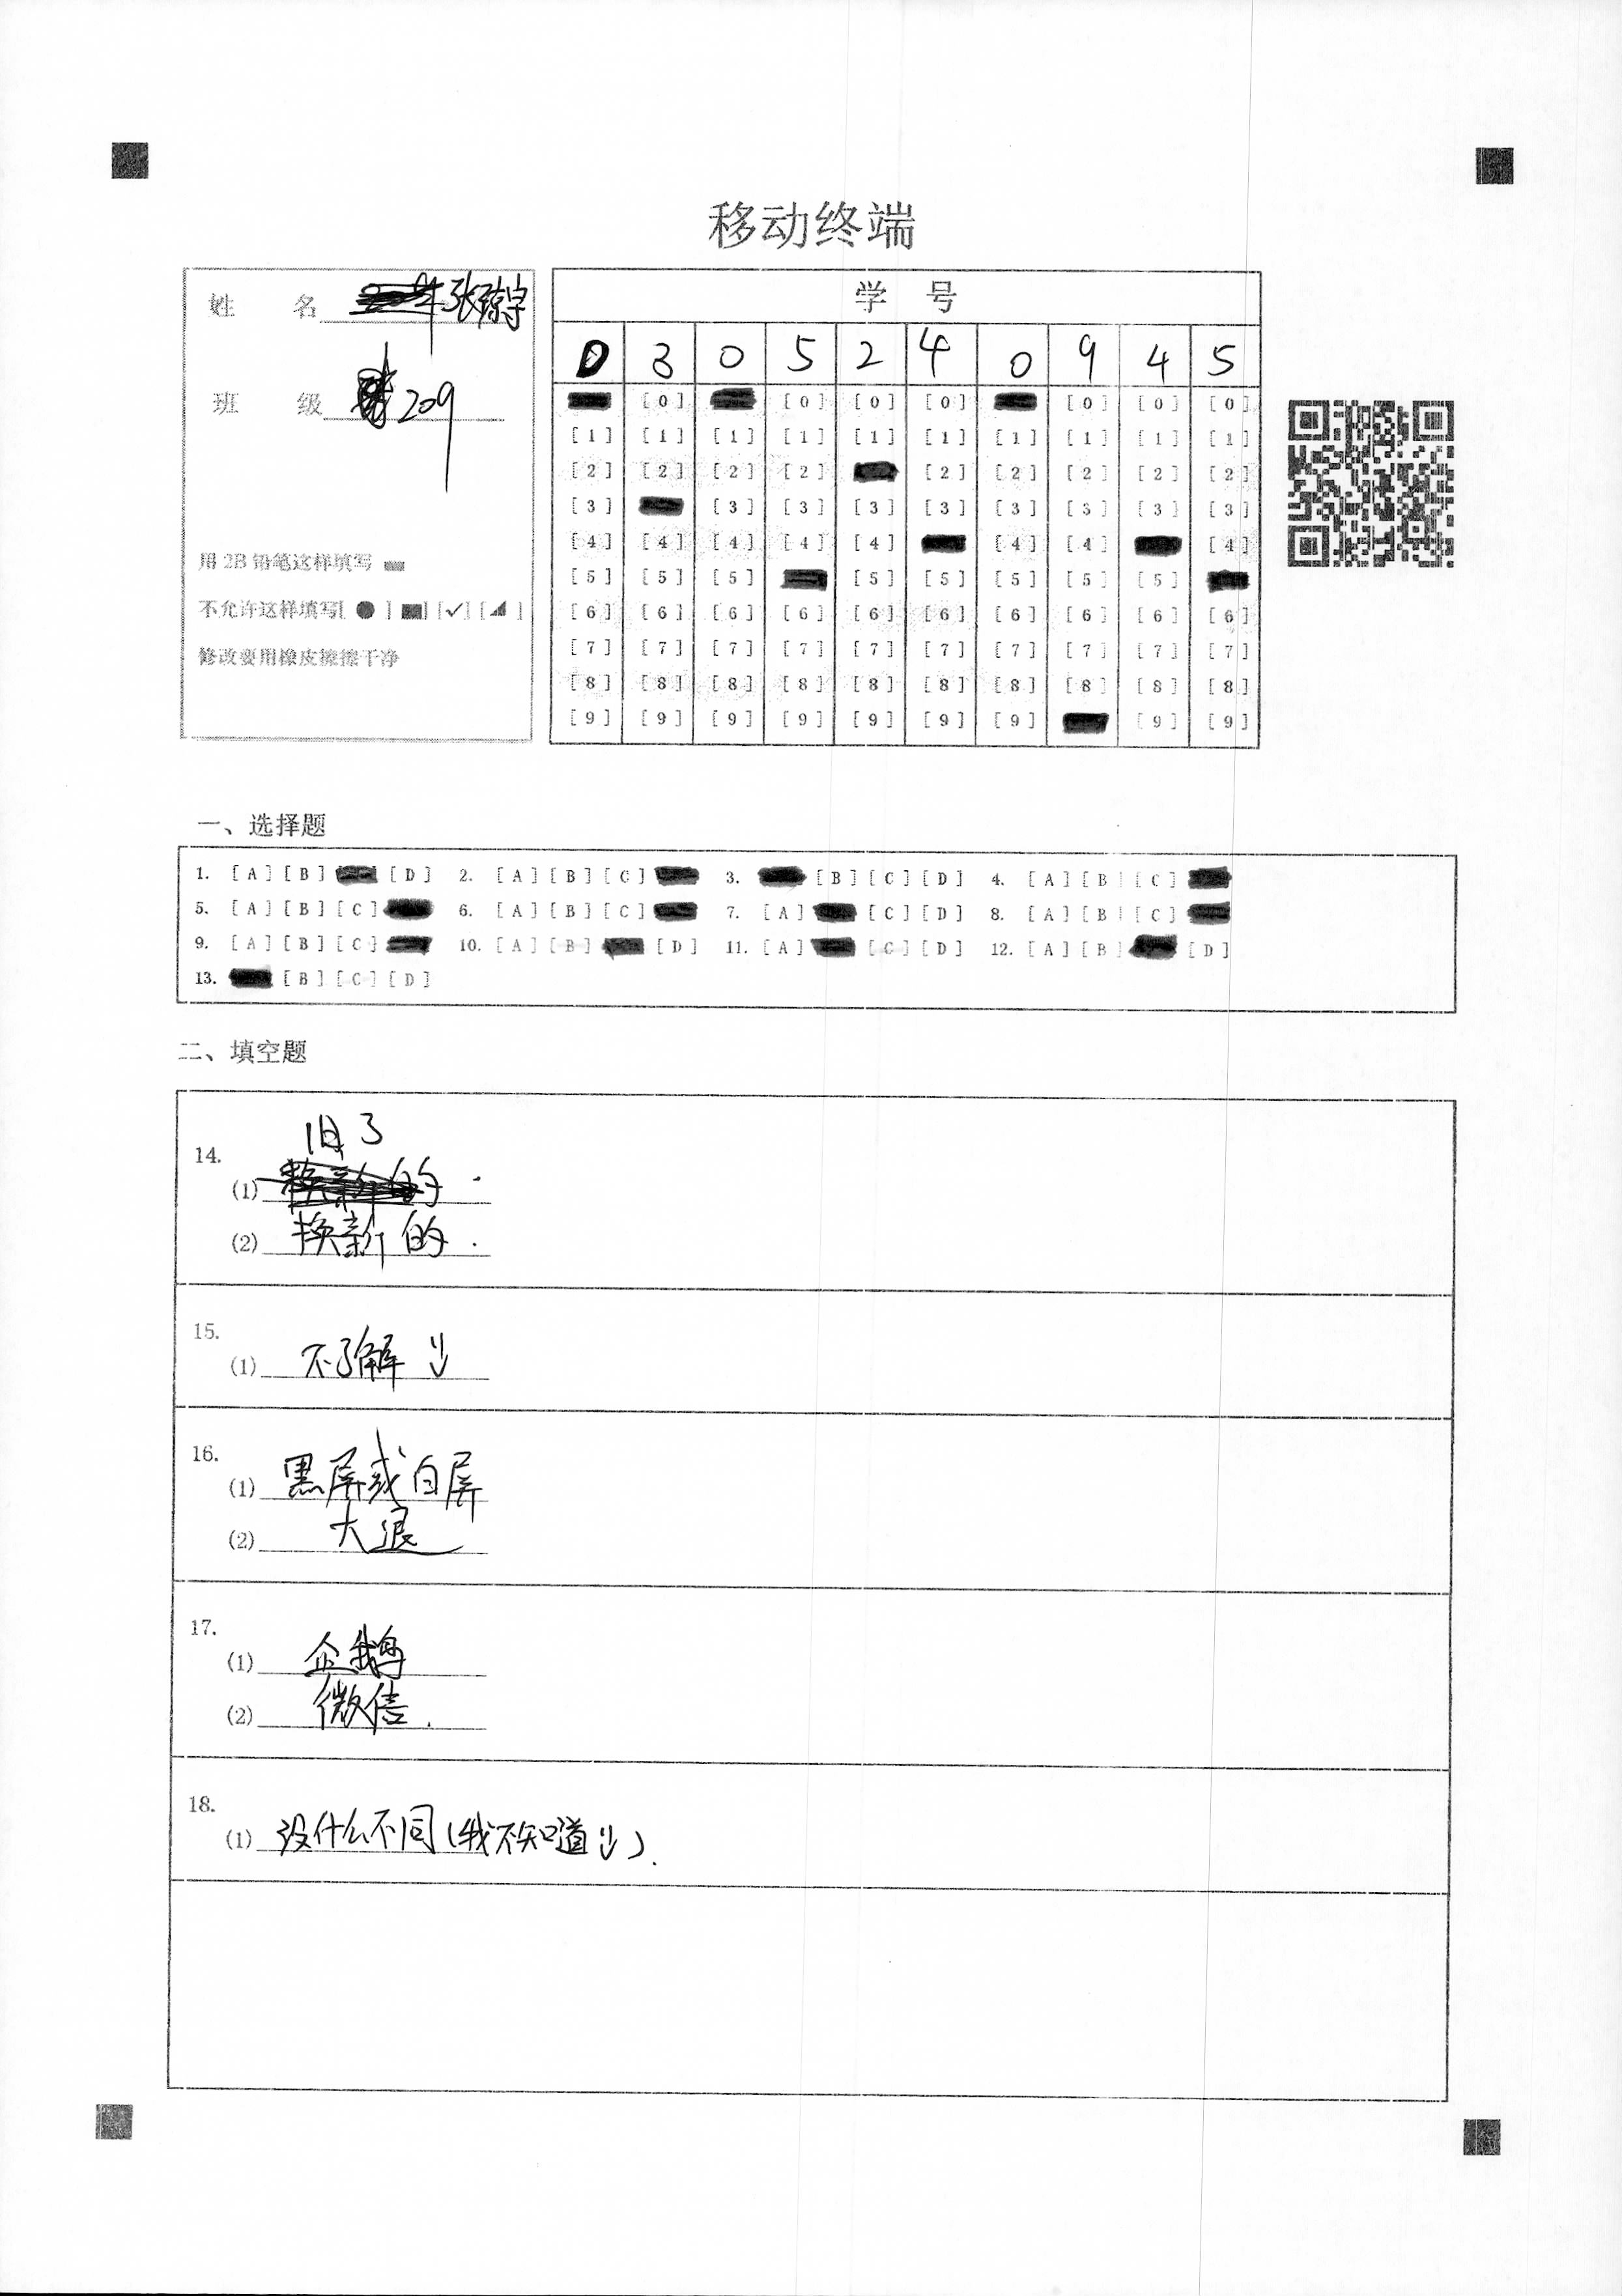 移动终端
姓 名 张
班 级 209
用 2B 铅笔这样填写
不允许这样填写[ ● ] [■] [✓] [◢ ]
修改要用橡皮擦擦干净
学 号
0 3 0 5 2 4 0 9 4 5
[0] [0] [0] [0] [0] [0] [0]
[1] [1] [1] [1] [1] [1] [1] [1] [1] [1]
[2] [2] [2] [2] [2] [2] [2] [2] [2]
[3] [3] [3] [3] [3] [3] [3] [3] [3]
[4] [4] [4] [4] [4] [4] [4] [4]
[5] [5] [5] [5] [5] [5] [5] [5]
[6] [6] [6] [6] [6] [6] [6] [6] [6] [6]
[7] [7] [7] [7] [7] [7] [7] [7] [7] [7]
[8] [8] [8] [8] [8] [8] [8] [8] [8] [8]
[9] [9] [9] [9] [9] [9] [9] [9] [9]
一、选择题
1. [A] [B] [D] 2. [A] [B] [C] 3. [B] [C] [D] 4. [A] [B] [C]
5. [A] [B] [C] 6. [A] [B] [C] 7. [A] [C] [D] 8. [A] [B] [C]
9. [A] [B] [C] 10. [A] [B] [D] 11. [A] [C] [D] 12. [A] [B] [D]
13. [B] [C] [D]
二、填空题
14.
旧了
(1)
(2) 换新的.
15.
(1) 不了解
16.
(1) 黑屏或白屏
(2) 大浪
17.
(1) 企鹅
(2) 微信.
18.
(1) 没什么不同(我不知道).